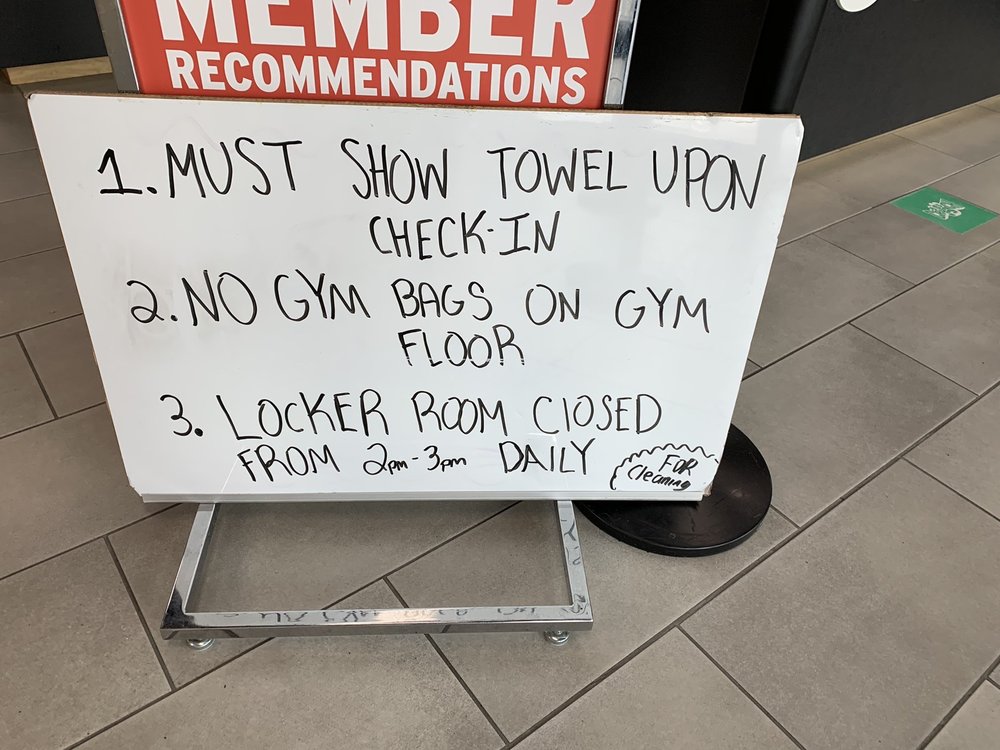 MEMBER
RECOMMENDATIONS
1. MUST SHOW TOWEL UPON
CHECK-IN
2. NO GYM BAGS ON GYM
FLOOR
3. LOCKER ROOM CLOSED
FROM 2pm-3pm DAILY
FOR
Cleaning